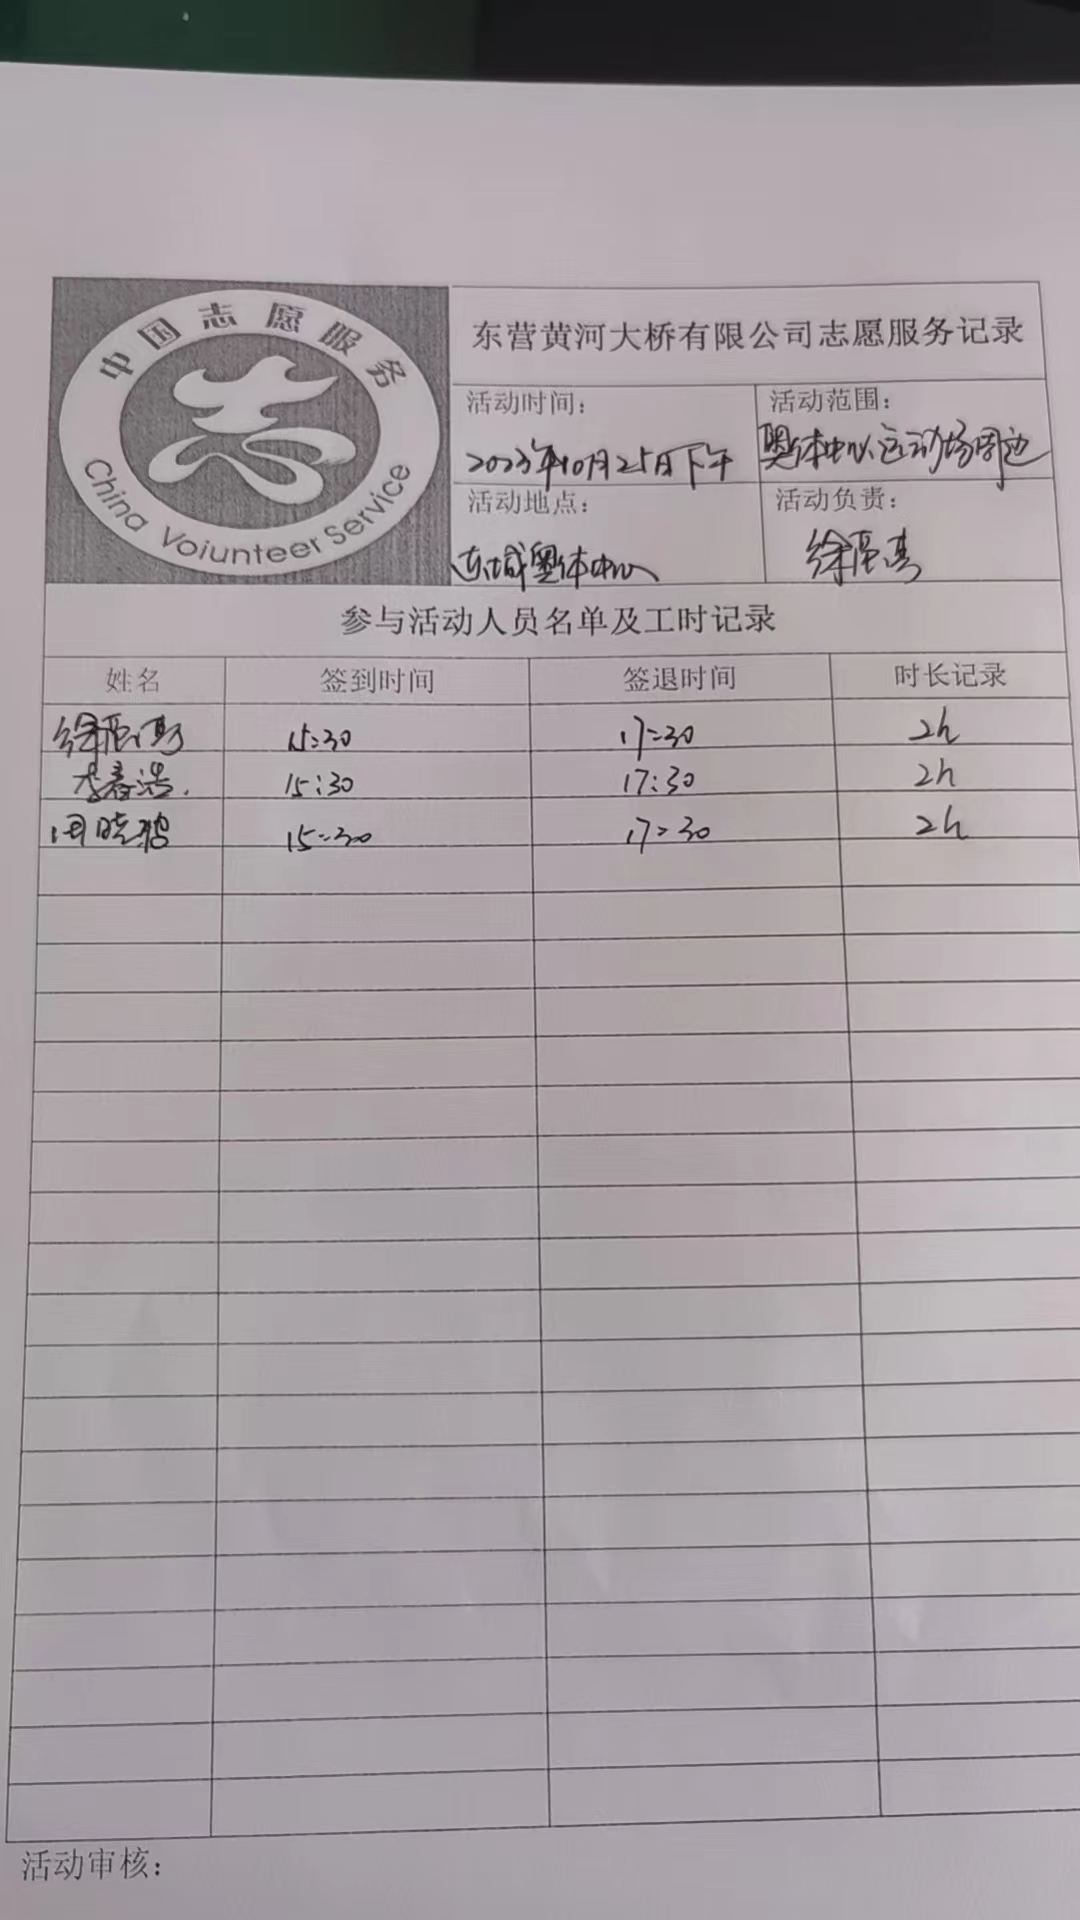 中国志愿服务
China Voiunteer Service
东营黄河大桥有限公司志愿服务记录
活动时间：
2023年10月25日下午
活动范围：
奥体中心运动场周边
活动地点：
东城奥体中心
活动负责：
徐
参与活动人员名单及工时记录
姓名 签到时间 签退时间 时长记录
徐 15:30 17:30 2h
李春浩 15:30 17:30 2h
周晓 15:30 17:30 2h
活动审核：